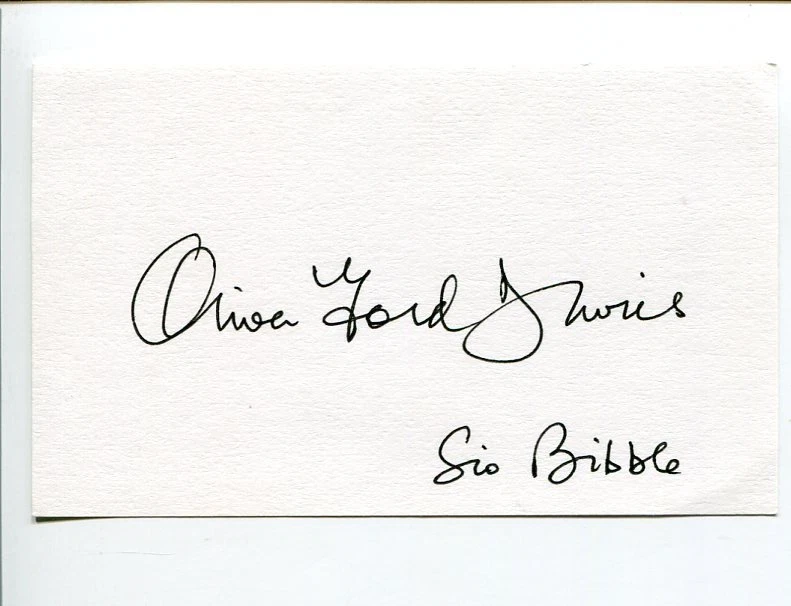 Oliver Ford Davies
Sio Bibble